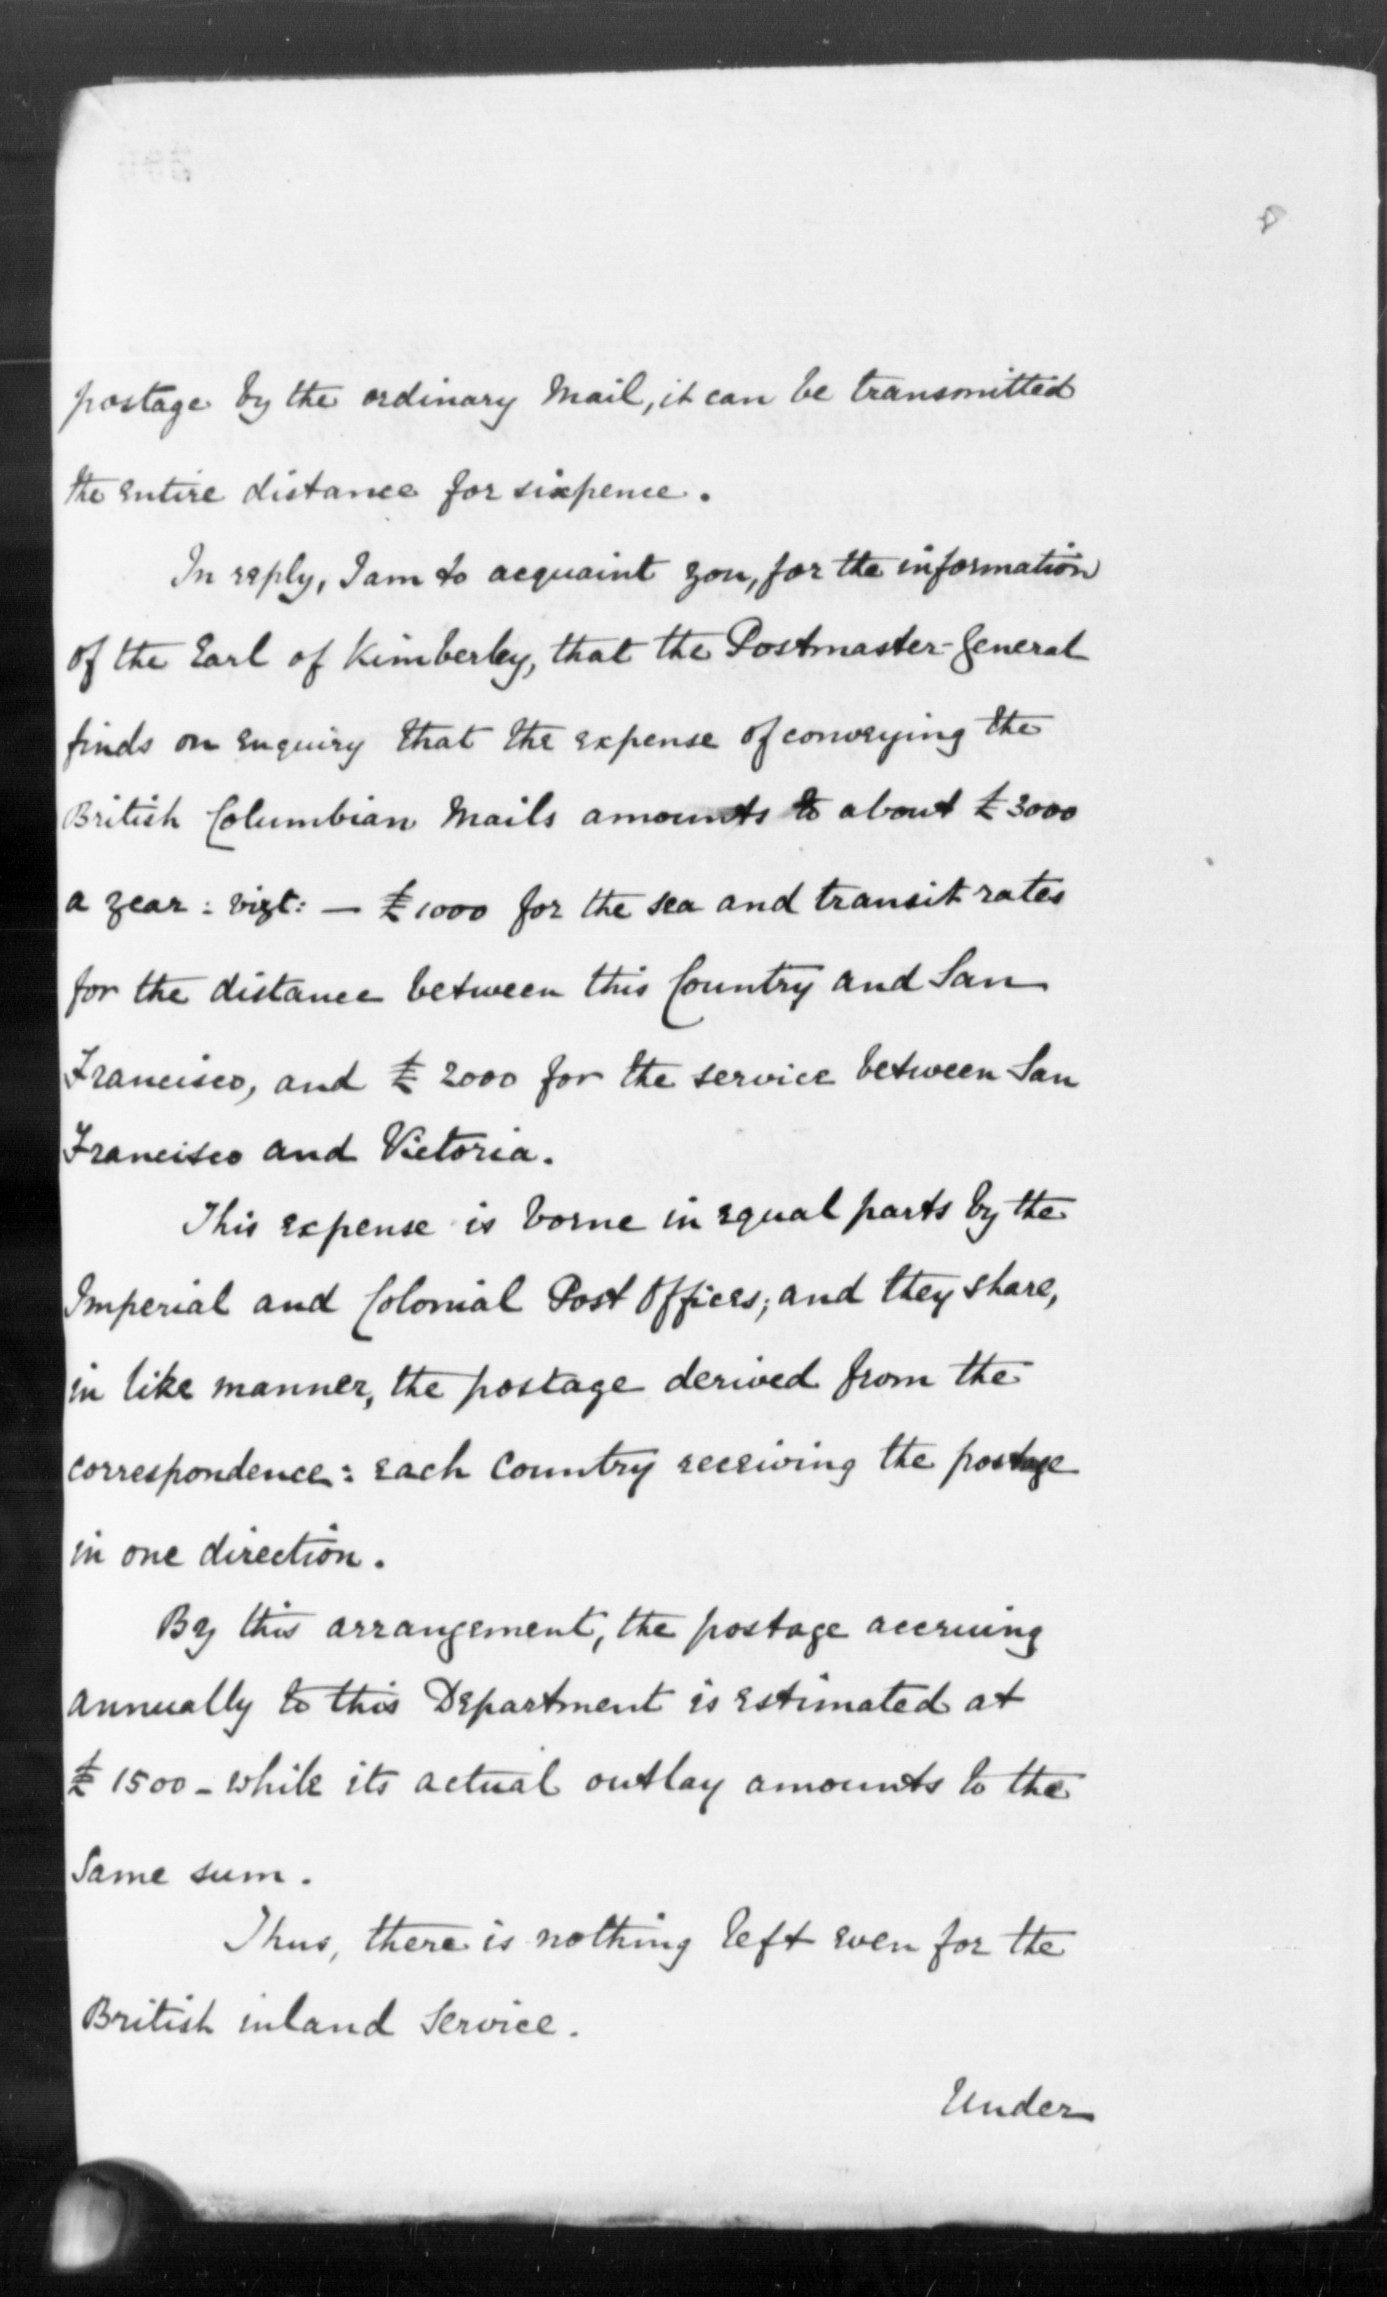 postage by the ordinary Mail, it can be transmitted
the entire distance for sixpence.
In reply, I am to acquaint you, for the information
of the Earl of Kimberley, that the Postmaster-General
finds on enquiry that the expense of conveying the
British Columbian Mails amounts to about £3000
a year: vizt: — £1000 for the sea and transit rates
for the distance between this Country and San
Francisco, and £2000 for the service between San
Francisco and Victoria.
This expense is borne in equal parts by the
Imperial and Colonial Post Offices; and they share,
in like manner, the postage derived from the
correspondence: each Country receiving the postage
in one direction.
By this arrangement, the postage accruing
annually to this Department is estimated at
£1500 - while its actual outlay amounts to the
same sum.
Thus, there is nothing left even for the
British inland Service.
Under